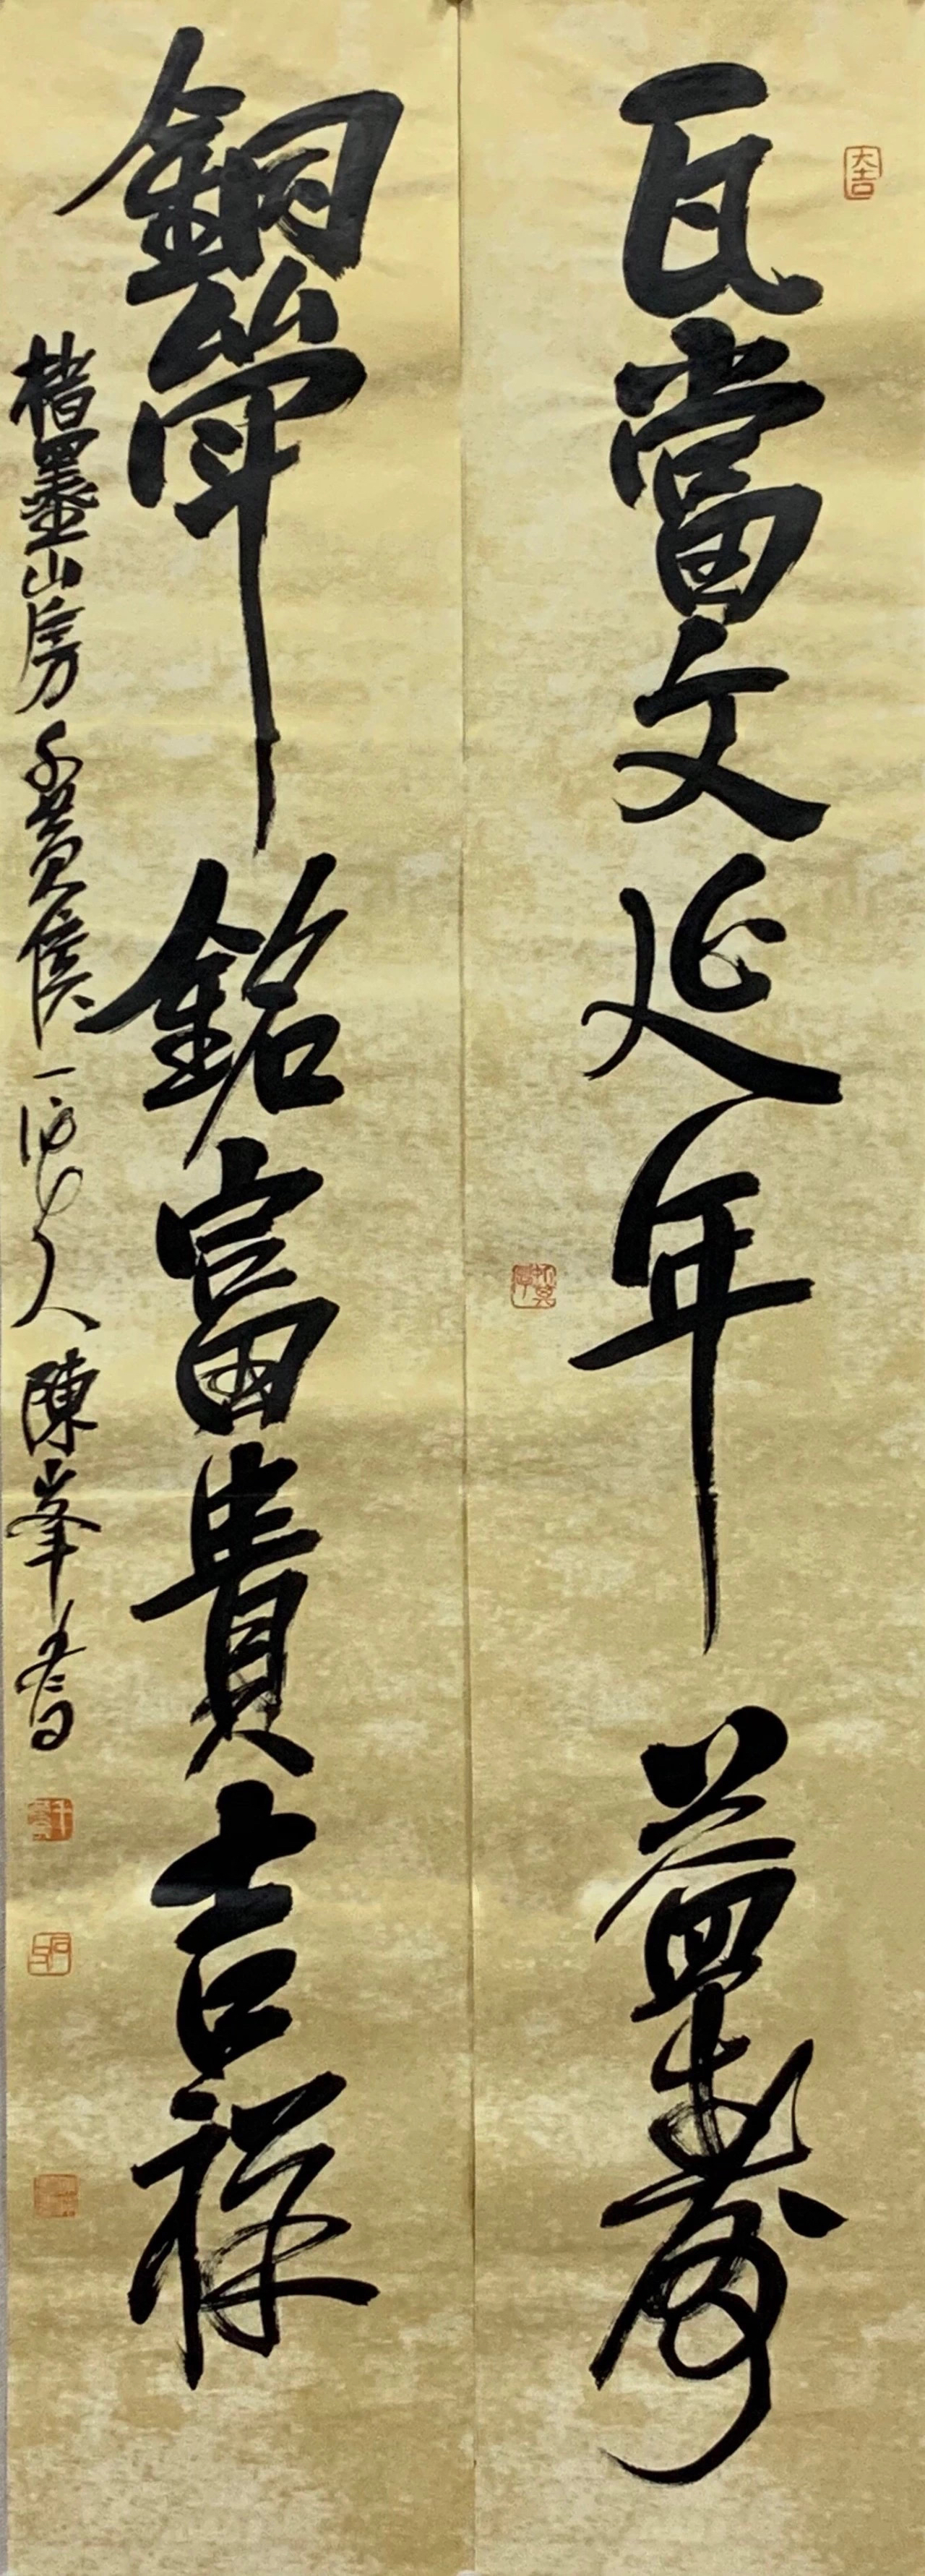 瓦當文延年益壽
銅斝銘富貴吉祥
楮墨山房 千黃侯一 人 陳峯書
大吉